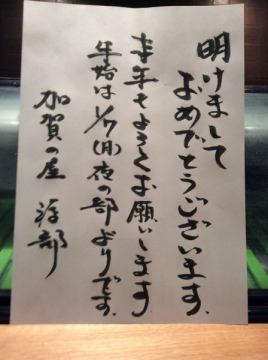 明けまして
おめでとうございます。
本年もよろしくお願いします
年始は1/7(月)夜の部よりです。
加賀の屋 游部